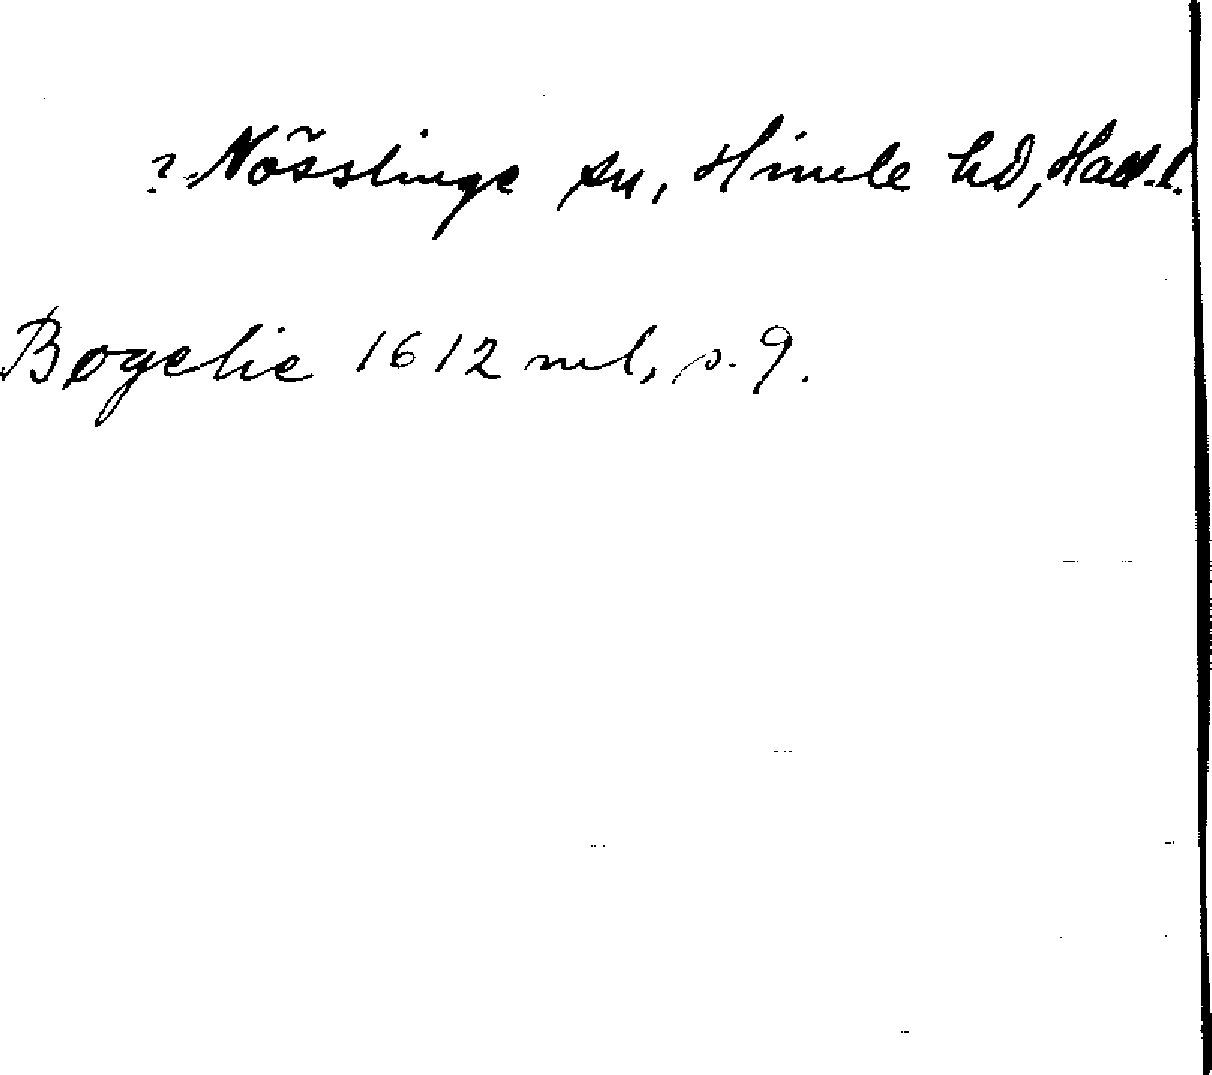 ? Nösslinge sn, Himle hd, Hall. l.
Bøgelie 1612 ml, s. 9.